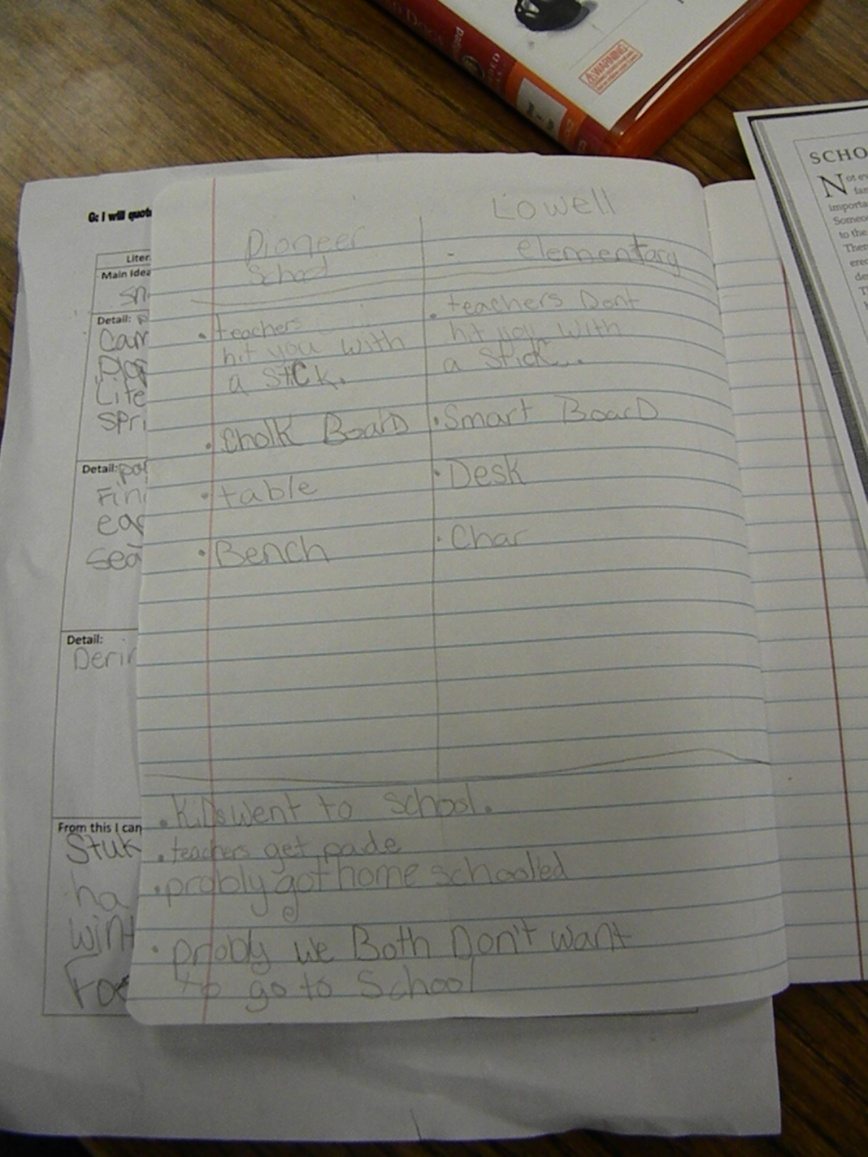 G: I will quot
Liter
Main Idea
Detail:
Cam
Lite
Spri
Detail:
Fin
Sea
Detail:
Derin
From this I can
Stuk
ha
wint
Foe
Lowell
Pioneer
School
elementary
• teachers
hit you with
a stick.
• teachers Dont
hit you with
a stick..
• Cholk BoarD
• Smart BoarD
• table
• Desk
• Bench
• Char
• KiDs went to school.
• teachers get pade
• probly got home schooled
• probly we Both Don't want
to go to School
WARNING
SCHO
Not ev
importa
Someo
to the